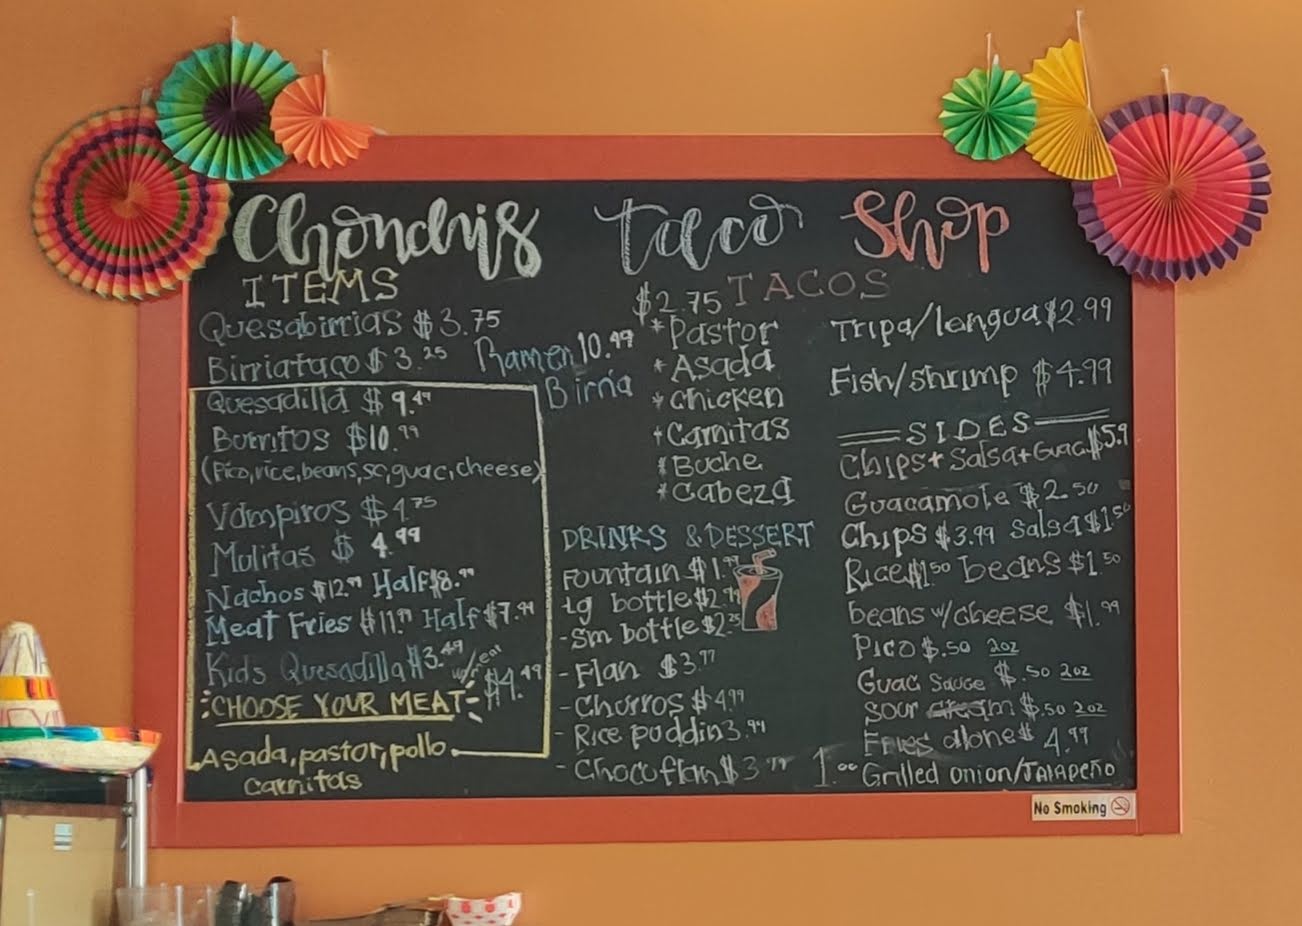 Chonchis taco Shop
ITEMS
Quesabirrias $3.75
Birriataco $3.25
Ramen 10.49
Birria
Quesadilla $9.49
Burritos $10.99
(Pico,rice,beans,sc,guac,cheese)
Vampiros $4.75
Mulitas $4.99
Nachos $12.99 Half $8.99
Meat Fries $11.99 Half $7.99
Kids Quesadilla $3.49 w/meat $4.49
CHOOSE YOUR MEAT
Asada,pastor,pollo
carnitas
$2.75 TACOS
*Pastor
*Asada
*chicken
*Carnitas
*Buche
*Cabeza
DRINKS & DESSERT
Fountain $1.99
Lg bottle $2.99
-Sm bottle $2.25
-Flan $3.99
-Churros $4.99
-Rice puddin 3.99
-Chocoflan $3.99
Tripa/lengua $2.99
Fish/shrimp $4.99
SIDES
Chips+Salsa+Guac $5.9
Guacamole $2.50
Chips $3.99 Salsa $1.50
Rice $1.50 beans $1.50
beans w/cheese $1.99
Pico $.50 2oz
Guac Sauce $.50 2oz
Sour cream $.50 2oz
Fries alone $4.99
1.00 Grilled onion/JALAPEÑO
No Smoking